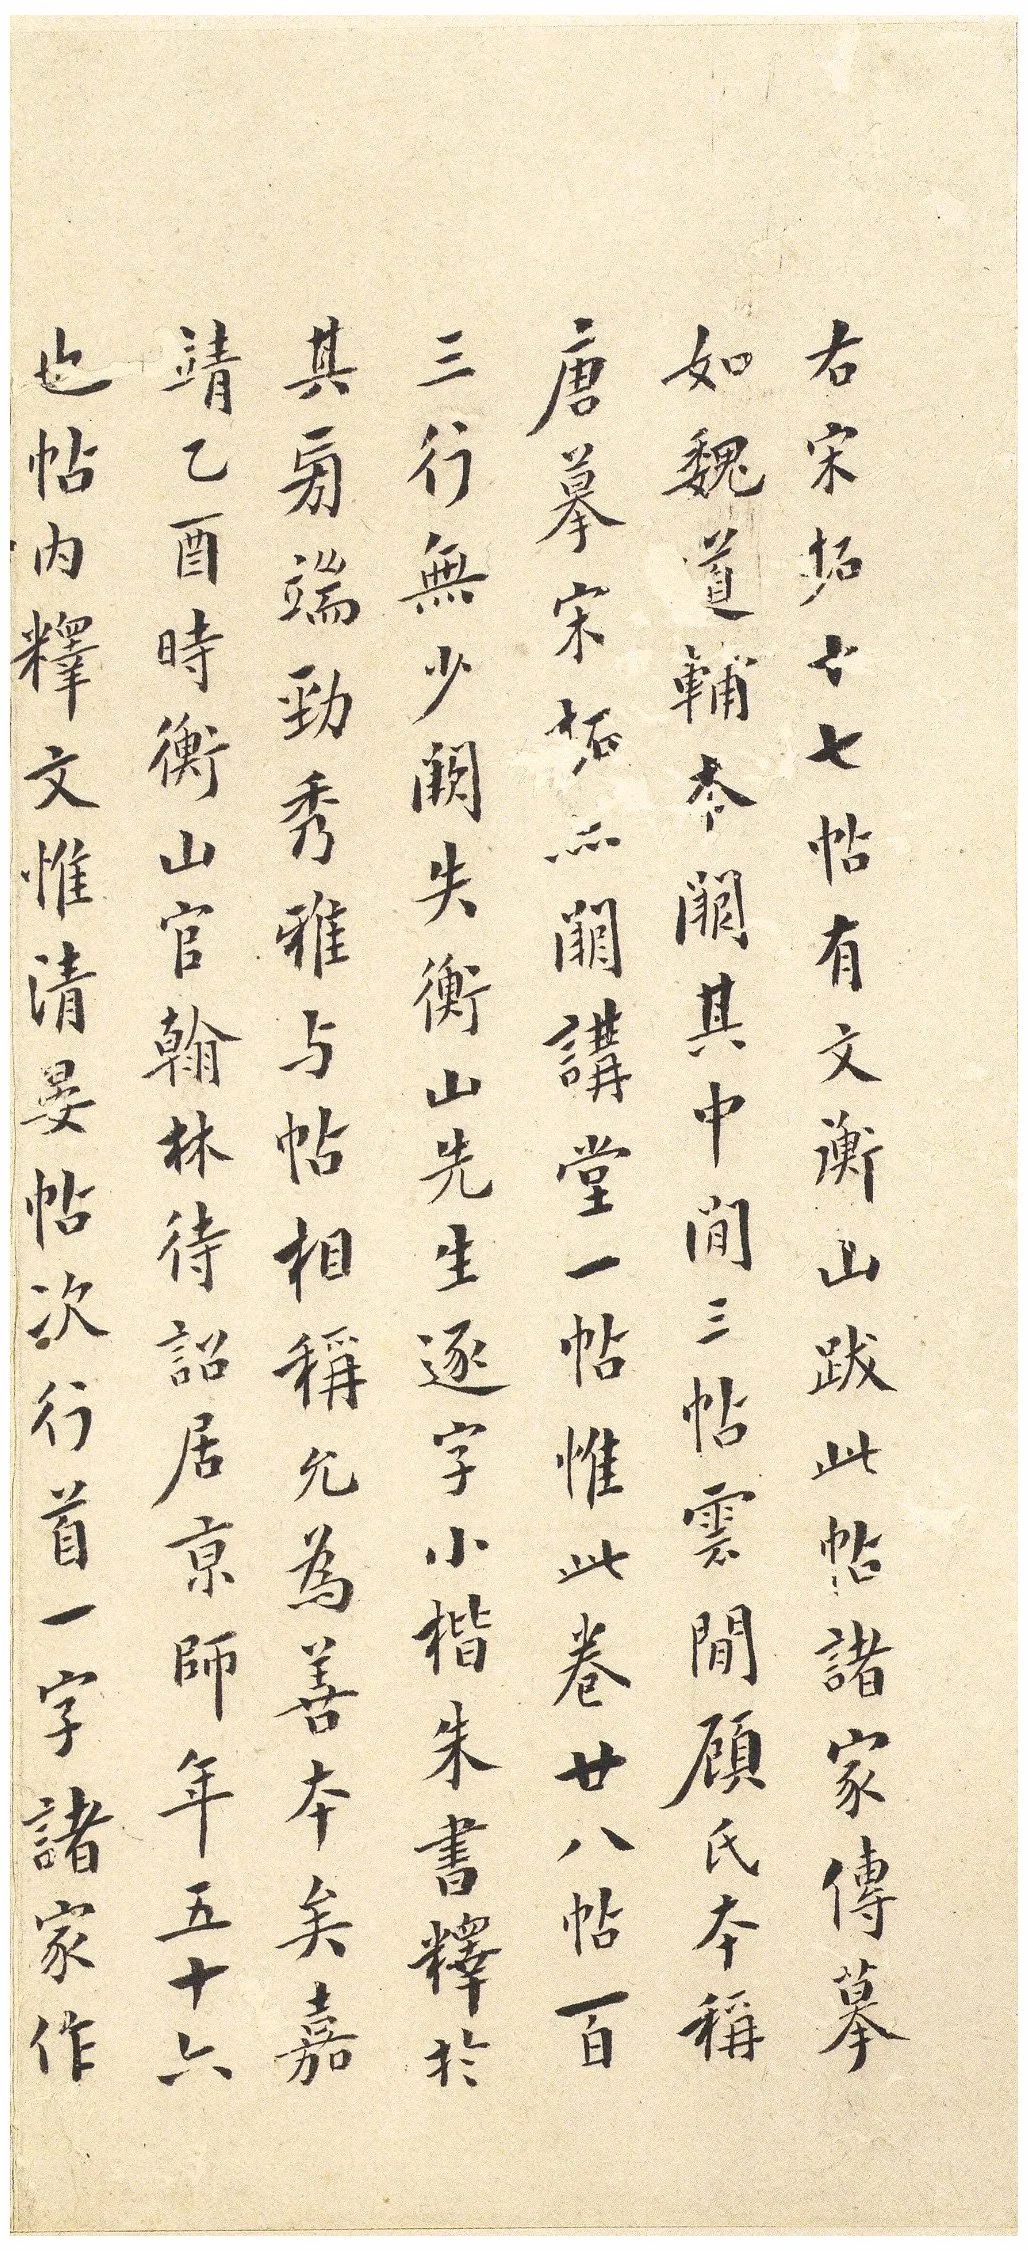 右宋拓十七帖有文衡山跋此帖諸家傳摹
如魏道輔本闕其中間三帖雲間顧氏本稱
唐摹宋拓亦闕講堂一帖惟此卷廿八帖百
三行無少闕失衡山先生逐字小楷朱書釋於
其旁端勁秀雅与帖相稱允為善本矣嘉
靖乙酉時衡山官翰林待詔居京師年五十六
也帖內釋文惟清晏帖次行首一字諸家作